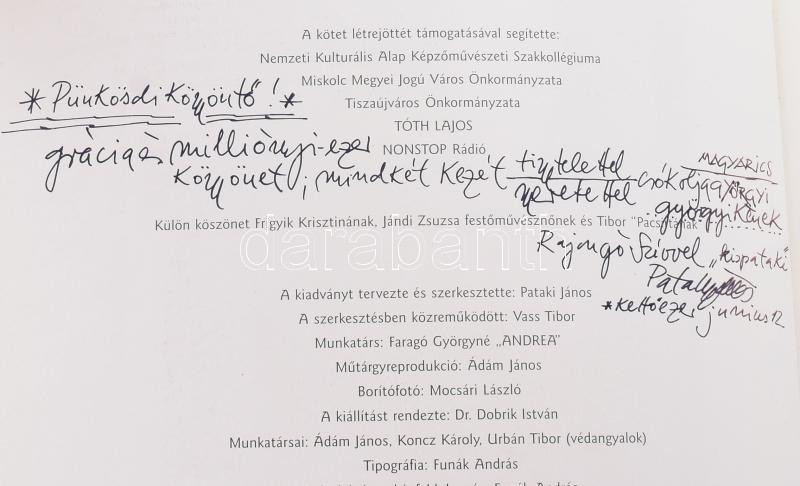 A kötet létrejöttét támogatásával segítette:
Nemzeti Kulturális Alap Képzőművészeti Szakkollégiuma
Miskolc Megyei Jogú Város Önkormányzata
* Pünkösdi Köszöntő! *
Tiszaújváros Önkormányzata
TÓTH LAJOS
grácia és milliönyi-ezer
NONSTOP Rádió
köszönet; mindkét Kezét tisztelettel
szeretettel csókolja
MAGYARICS
GYÖRGYI
györgyikének
Külön köszönet Frigyik Krisztinának, Jándi Zsuzsa festőművésznőnek és Tibor "Pacsirtának"
Rajongó Szívvel „kispataki"
Pataky
* Kettőezer június 12
darabanth
A kiadványt tervezte és szerkesztette: Pataki János
A szerkesztésben közreműködött: Vass Tibor
Munkatárs: Faragó Györgyné „ANDREA"
Műtárgyreprodukció: Ádám János
Borítófotó: Mocsári László
A kiállítást rendezte: Dr. Dobrik István
Munkatársai: Ádám János, Koncz Károly, Urbán Tibor (védangyalok)
Tipográfia: Funák András